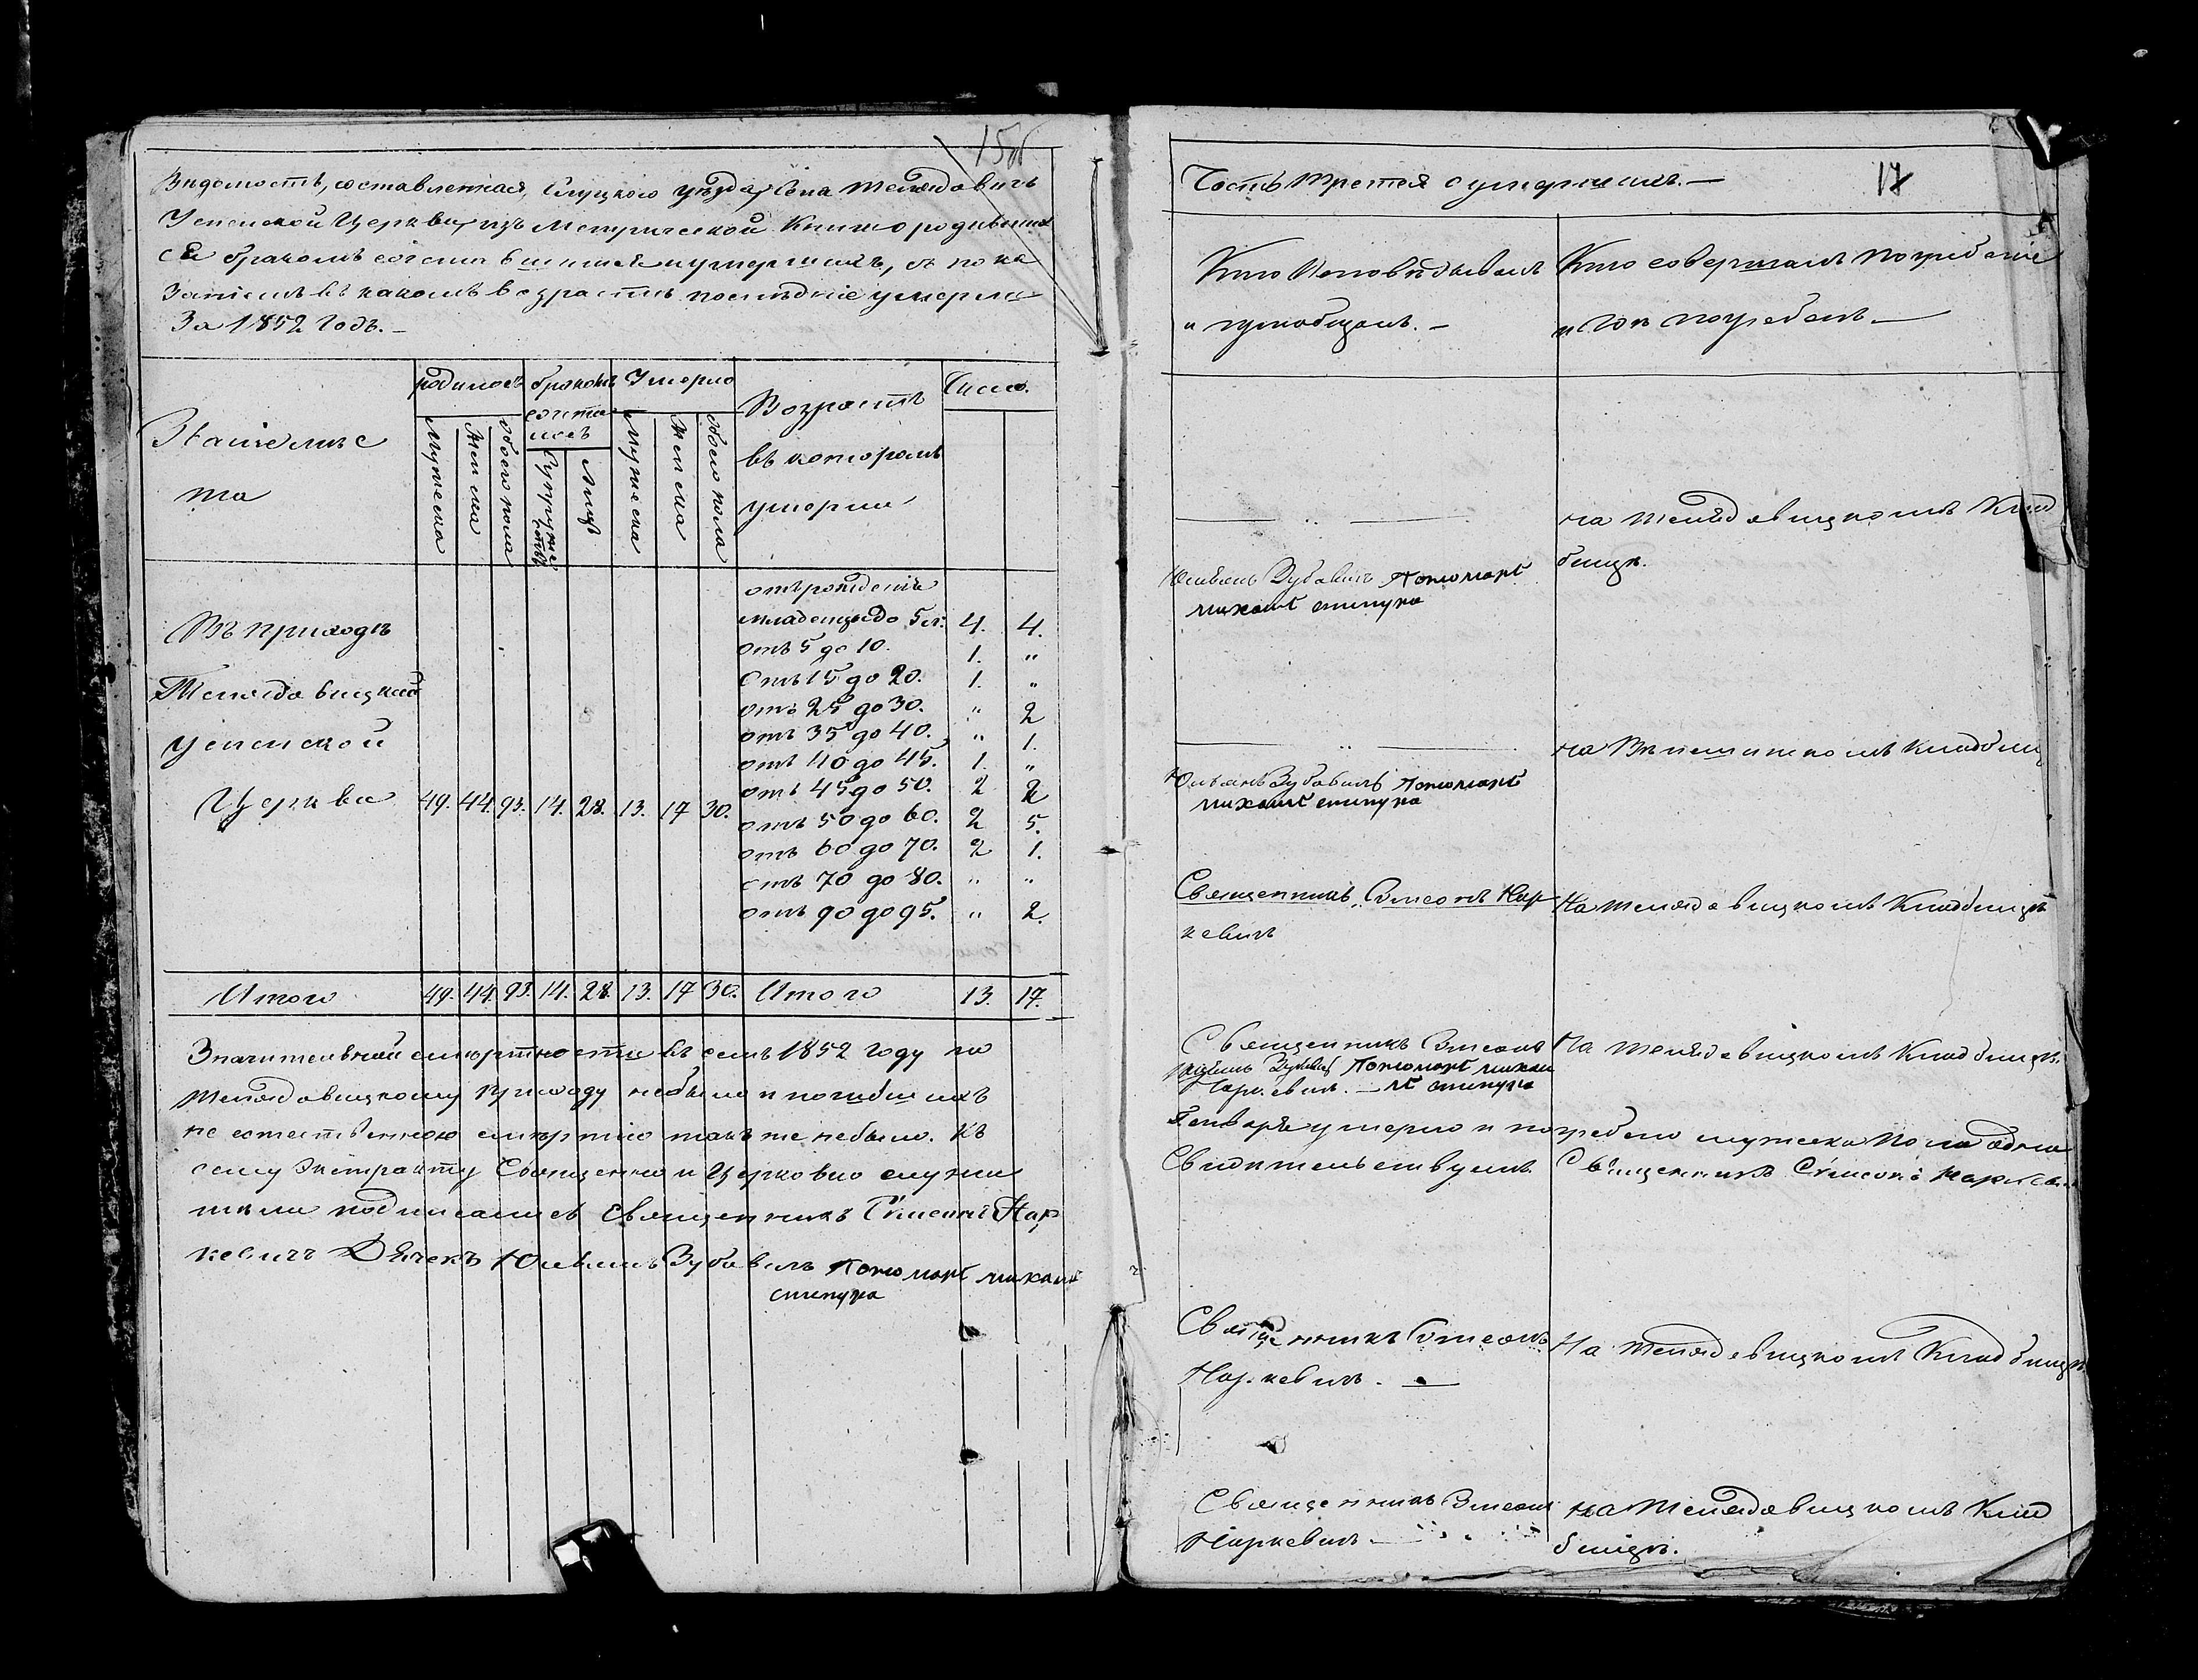 15об
Ведомость, составленная, Слуцкого уезда, Села Телядовичь
Успенской Церкви, изъ Метрической Книги о родивших
ся бракомъ сочетавшихся и умершихъ, съ пока
заніемъ въ какомъ возрасте последніе умерли
За 1852 Годъ. —
Званіе места
родилось
браковъ сочеталось
Умерло
Возрастъ въ которомъ умерли
Число.
Мужеска
Женска
Обоего пола
Супружествъ
Лицъ
Мужеска
Женска
Обоего пола
Въ приходе
Телядовицкой
Успенской
Церкви 49. 44. 93. 14. 28. 13. 17 30.
отъ рожденія
младенцевъ до 5 л. 4. 4.
отъ 5 до 10. 1. "
Отъ 15 до 20. 1. "
отъ 25 до 30. " 2
отъ 35 до 40. " 1.
отъ 40 до 45. 1. "
отъ 45 до 50. 2 2
отъ 50 до 60. 2 5.
отъ 60 до 70. 2 1.
отъ 70 до 80. " "
отъ 90 до 95. " 2.
Итого 49. 44. 93. 14. 28. 13. 17 30. Итого 13. 17.
Значительной смертности въ семъ 1852 году по
Телядовицкому приходу небыло и погибшихъ
не естественною смертію такъ же небыло. Къ
сему Экстракту Священно и Церковно служи
тели подписались Священникъ Сімеонъ Нар
кевичъ Дьячекъ Юльянъ Зубовичъ Пономарь михаилъ
Часть Третея о умершихъ. —
17
Кто Исповедывалъ
и пріобщалъ. —
Кто совершалъ погребеніе
и где погребенъ —
— " —
на Телядовицкомъ Клад
бище.
Юльянъ Зубовичъ Пономарь
— " —
Юльянъ Зубовичъ Пономарь
Священникъ Сімеонъ Нар
кевичъ
На Телядовицкомъ Кладбище
Священникъ Сімеонъ
Юльянъ Зубовичъ Пономарь михаи
Наркевичъ. —
На Телядовицкомъ Кладбище.
Генваря умерло и погребено мужеска пола одна
Свидетельствуемъ Священникъ Сімеонъ Наркевичъ
Священникъ Сімеонъ
Наркевичъ. —
На Телядовицкомъ Кладбище
Священникъ Сімеонъ
Наркевичъ —
на Телядовицкомъ Клад
бище.